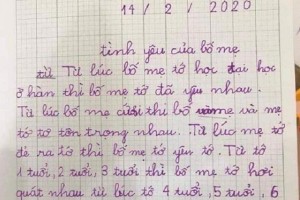 14 / 2 / 2020
tình yêu của bố mẹ
Từ lúc bố mẹ tớ học đại học
ở hàn thì bố mẹ tớ đã yêu nhau.
Từ lúc bố mẹ cưới thì bố và mẹ
tớ tôn trọng nhau. Từ lúc mẹ tớ
đẻ ra tớ thì bố mẹ tớ yêu tớ. Từ tớ
1 tuổi, 2 tuổi, 3 tuổi thì bố mẹ tớ hơi
quát nhau từ lúc tớ 4 tuổi, 5 tuổi, 6